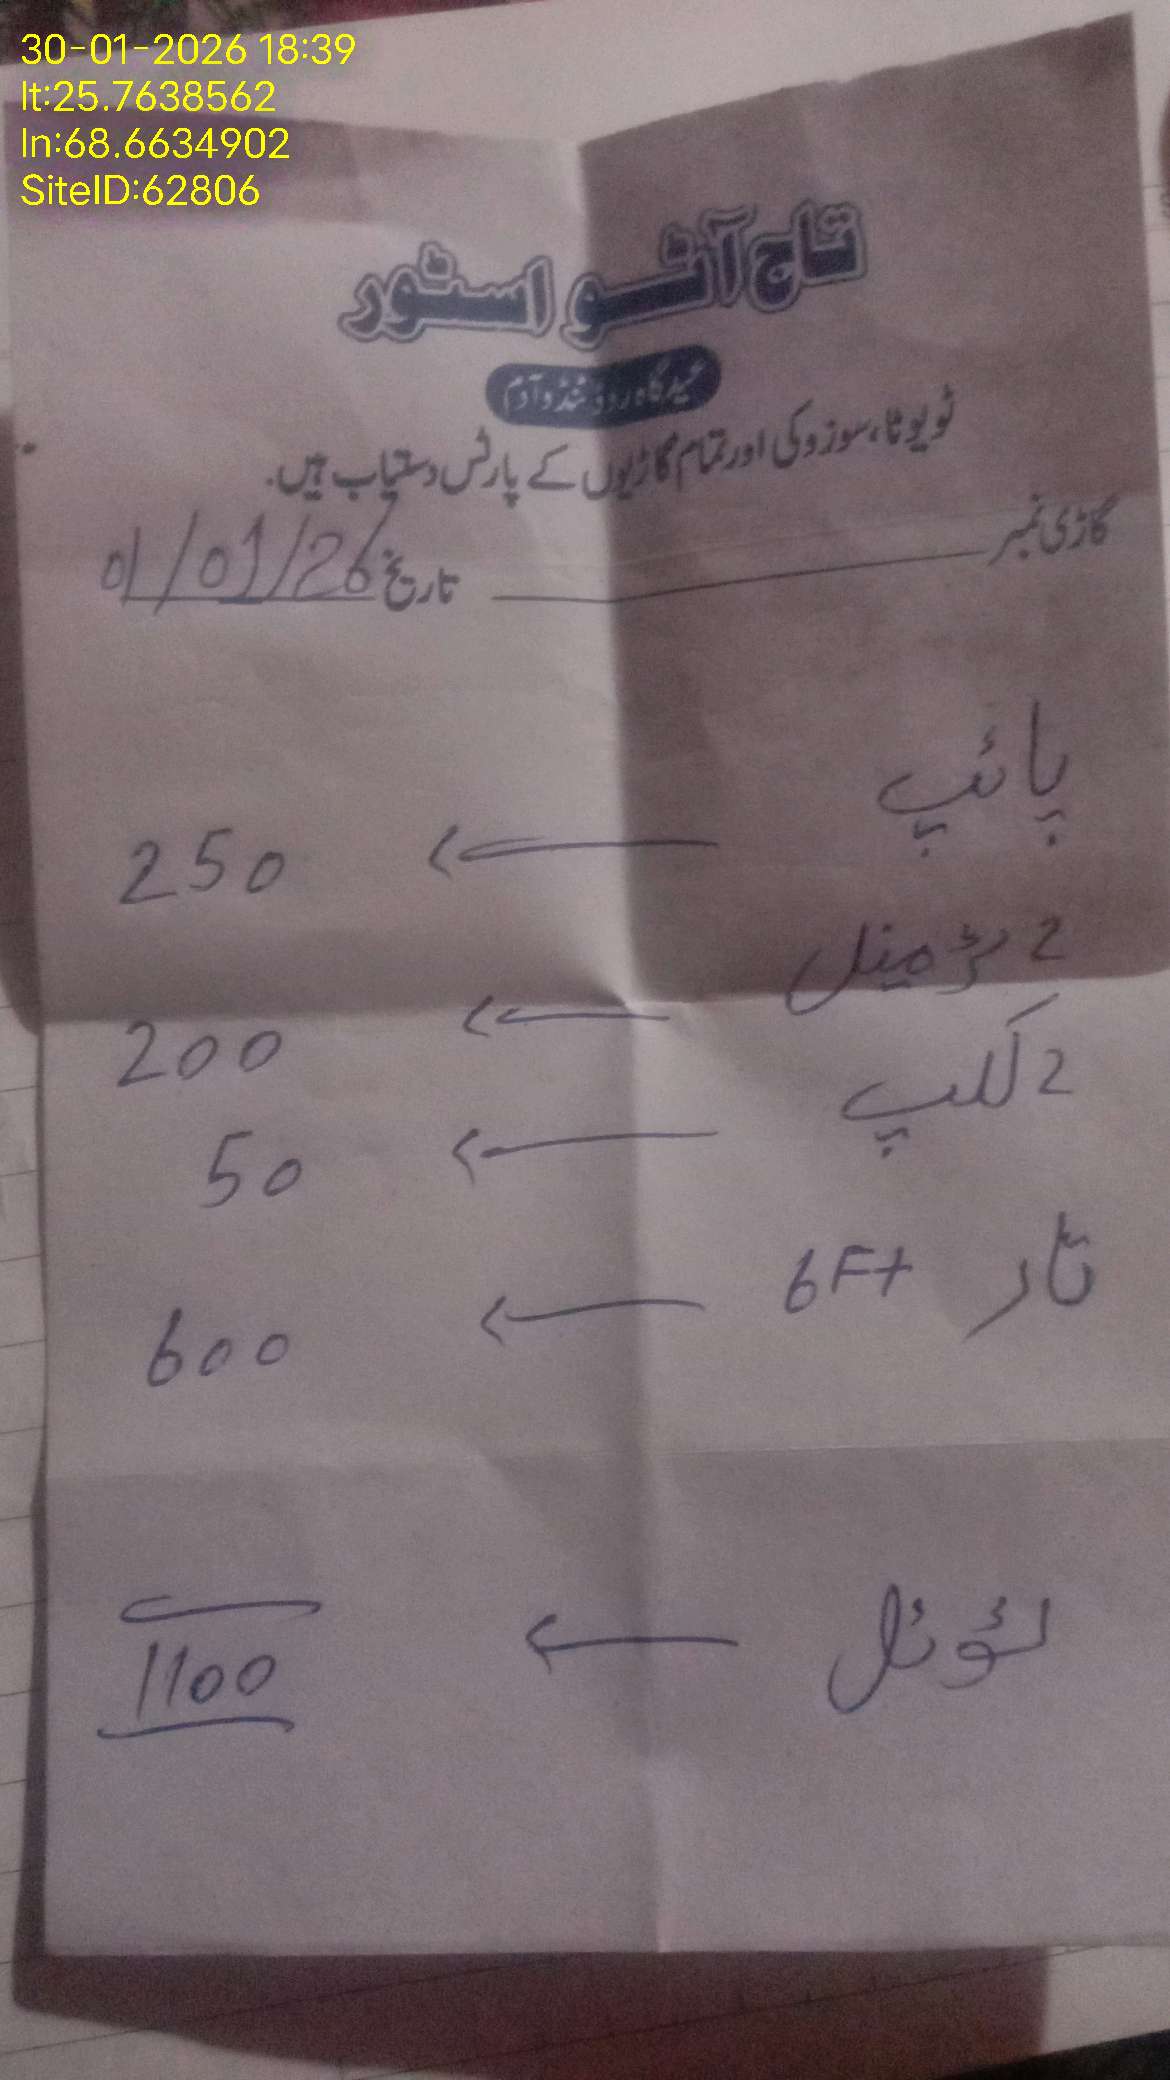 30-01-2026 18:39
lt:25.7638562
ln:68.6634902
SiteID:62806
تاج آٹو اسٹور
عیدگاہ روڈ ٹنڈوآدم
ٹویوٹا، سوزوکی اور تمام گاڑیوں کے پارٹس دستیاب ہیں.
گاڑی نمبر
تاریخ 01/01/26
پائپ ← 250
2 ٹرمینل ← 200
2 کلپ ← 50
تار 6Ft ← 600
ٹوٹل ← 1100